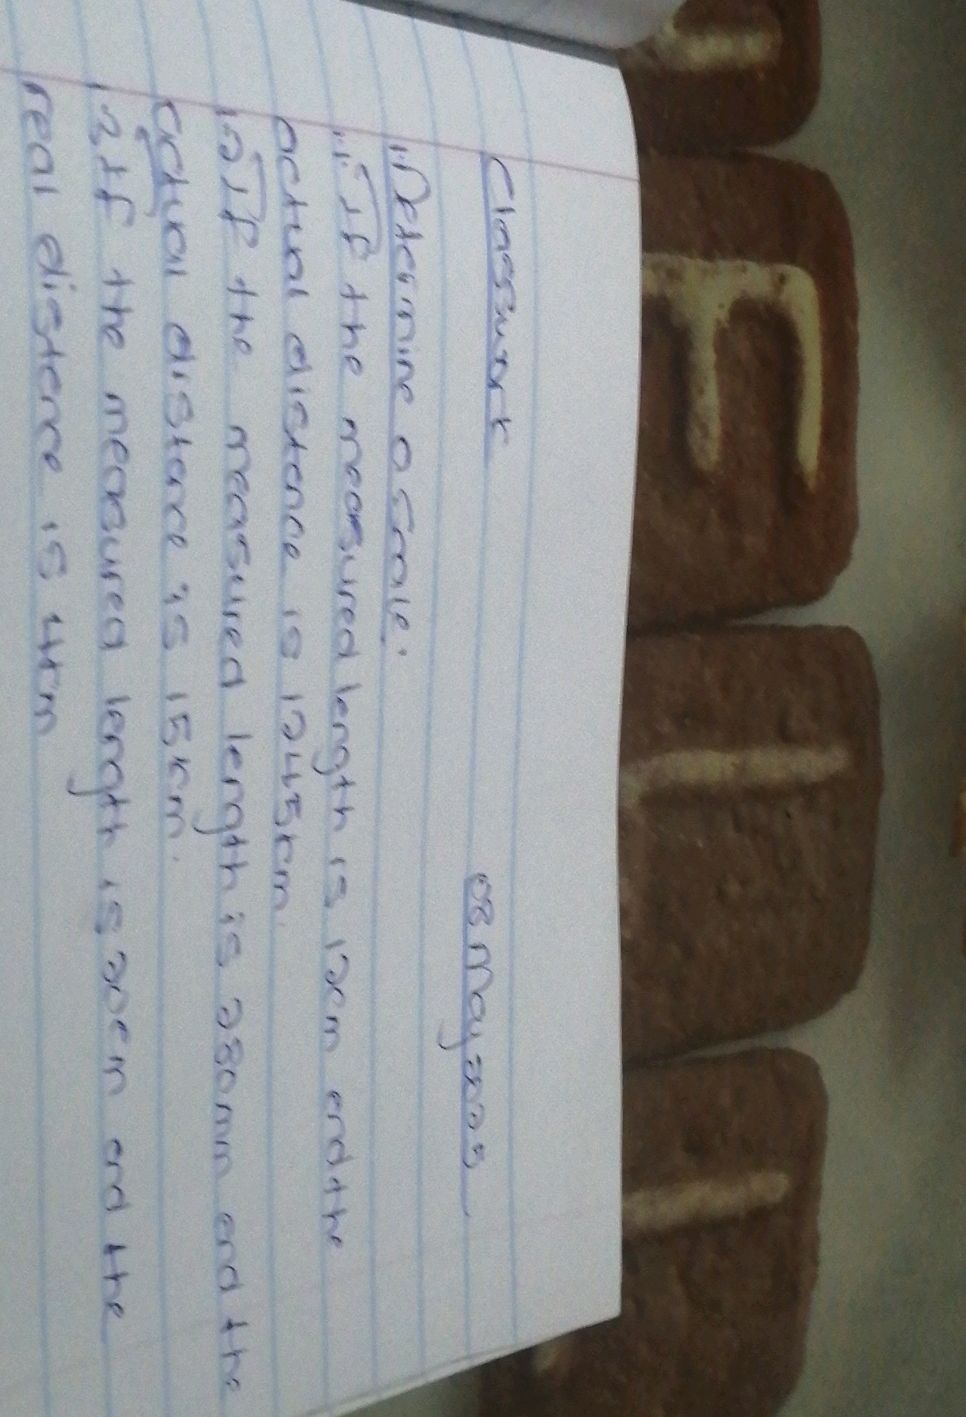 Classwork 08 May 2025
1. Determine a scale:
1.1. If the measured length is 12cm and the
actual distance is 1245km.
1.2 If the measured length is 280mm and the
actual distance is 15km.
1.3 If the measured length is 20cm and the
real distance is 4km